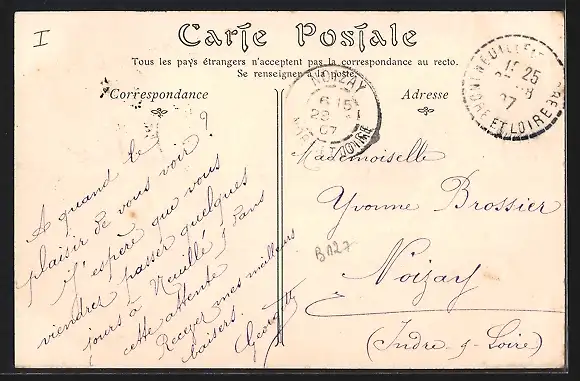 I
Carte Postale
Tous les pays étrangers n'acceptent pas la correspondance au recto.
Se renseigner à la poste.
Correspondance
Adresse
A quand le
plaisir de vous voir ?
J'espère que vous
viendrez passer quelques
jours à Neuillé, dans
cette attente
Recevez mes meilleurs
baisers.
Georgette
NOIZAY
6 15
07
INDRE ET LOIRE
25
07
INDRE ET LOIRE
Mademoiselle
Yvonne Brossier
B127
Noizay
(Indre & Loire)